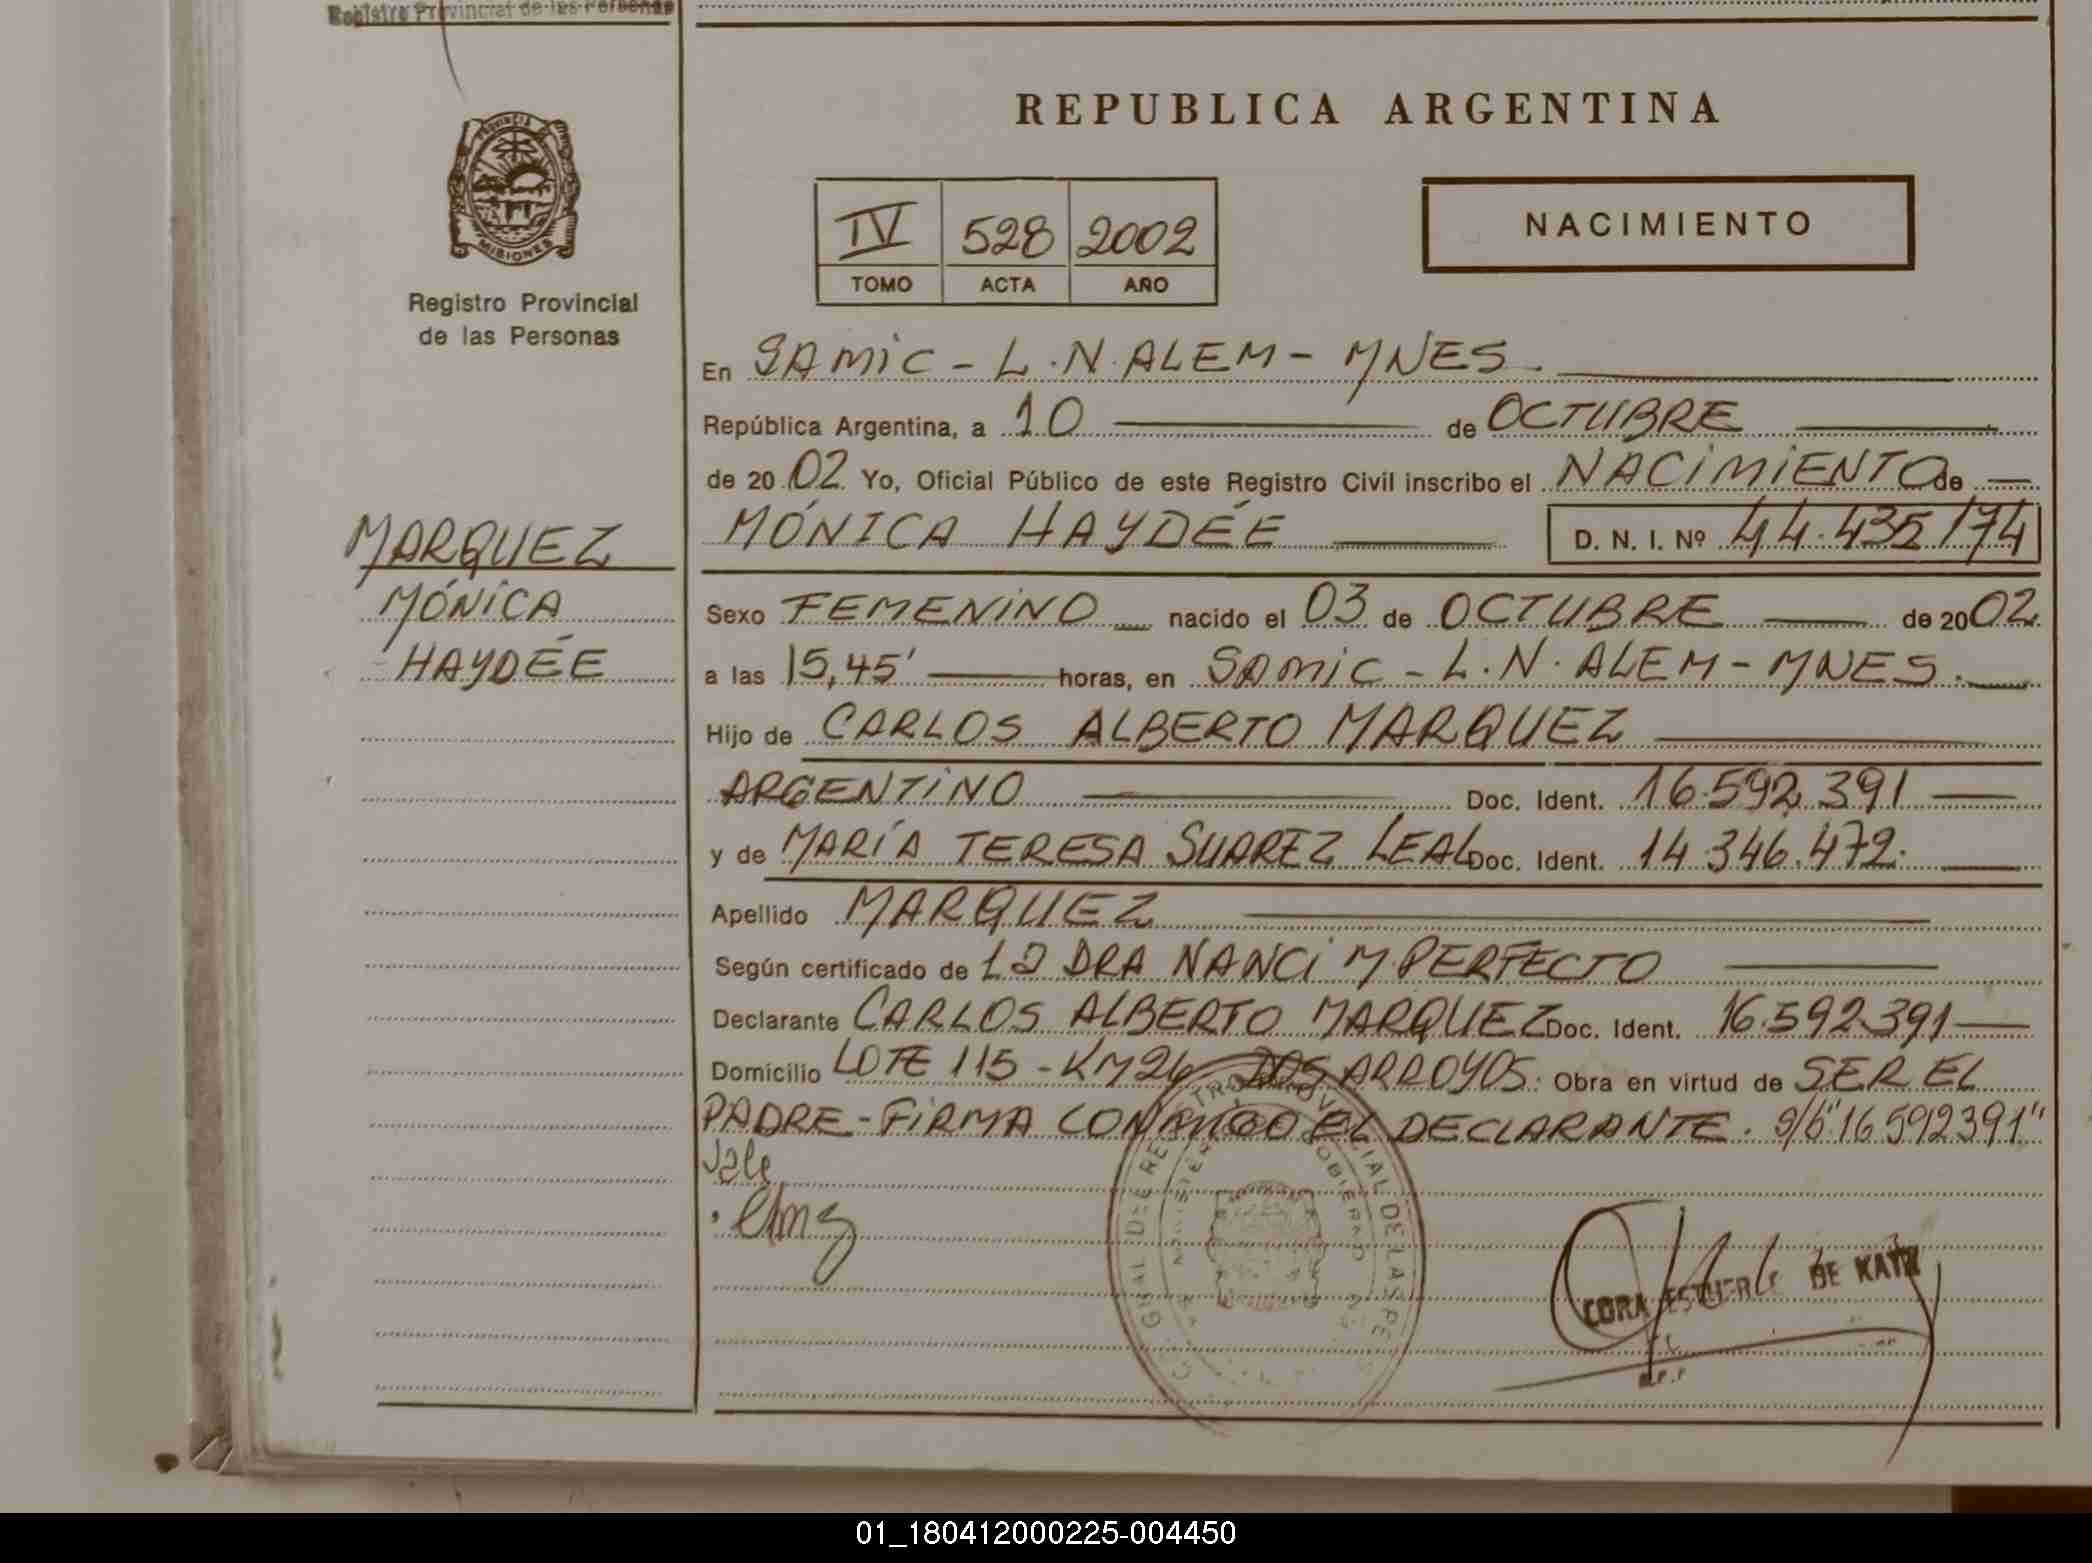 Registro Provincial de las Personas
REPUBLICA ARGENTINA
PROVINCIA
MISIONES
Registro Provincial
de las Personas
IV 528 2002
TOMO ACTA AÑO
NACIMIENTO
En SAMIC - L.N. ALEM - MNES.
República Argentina, a 10 de OCTUBRE
de 2002 Yo, Oficial Público de este Registro Civil inscribo el NACIMIENTO de
MÓNICA HAYDÉE D. N. I. Nº 44.435174
MARQUEZ
MÓNICA
HAYDÉE
Sexo FEMENINO nacido el 03 de OCTUBRE de 2002
a las 15,45' horas, en SAMIC - L.N. ALEM - MNES.
Hijo de CARLOS ALBERTO MARQUEZ
ARGENTINO Doc. Ident. 16.592.391
y de MARÍA TERESA SUAREZ LEAL Doc. Ident. 14.346.472.
Apellido MARQUEZ
Según certificado de DRA NANCI M. PERFECTO
Declarante CARLOS ALBERTO MARQUEZ Doc. Ident. 16.592.391
Domicilio LOTE 115 - KM 26 DOS ARROYOS. Obra en virtud de SER EL
PADRE - FIRMA CONMIGO EL DECLARANTE. S/b "16592391"
Vale
CORA DE KATZ
01_180412000225-004450